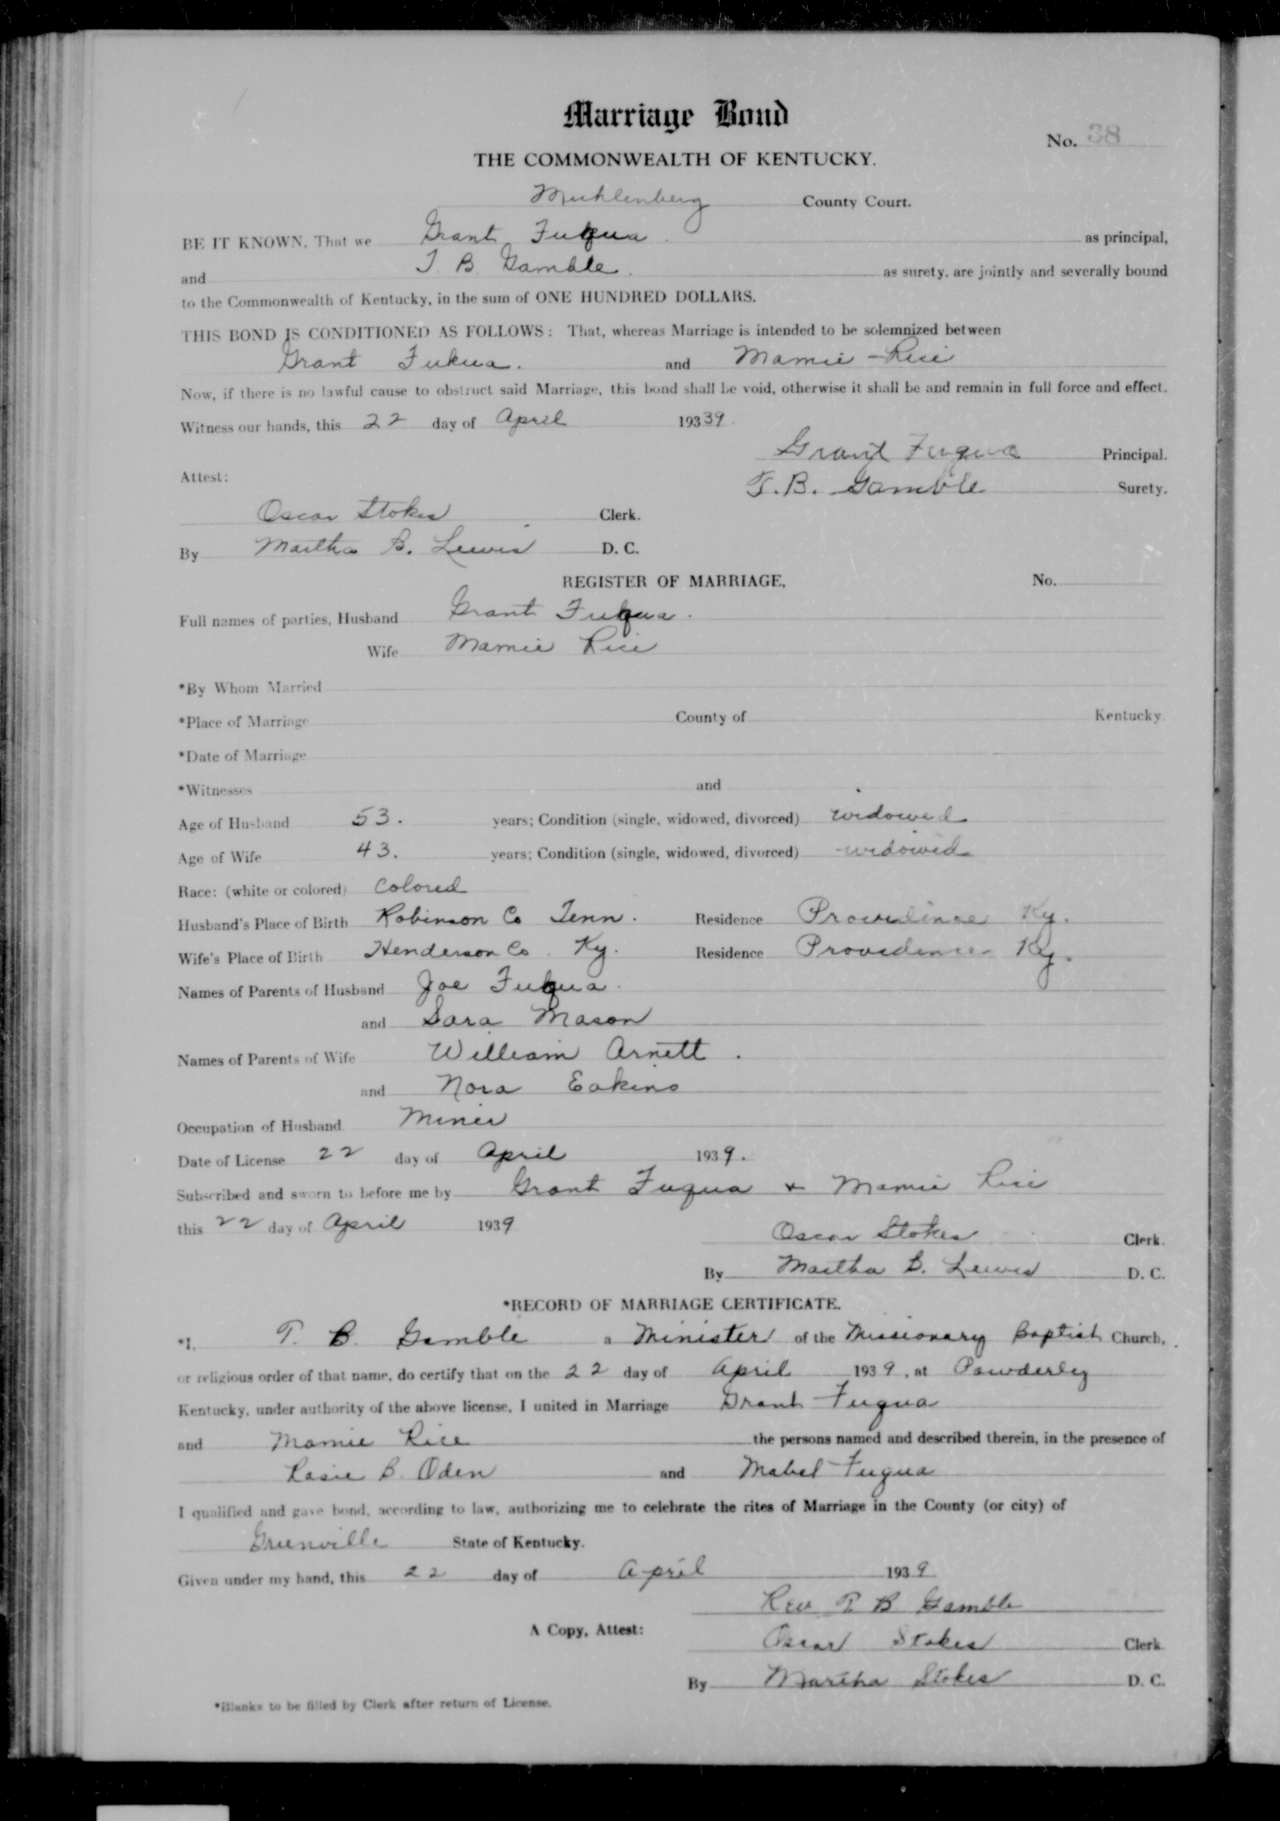 Marriage Bond
No. 38
THE COMMONWEALTH OF KENTUCKY.
Muhlenberg County Court.
BE IT KNOWN, That we Grant Fuqua as principal,
and T. B. Gamble. as surety, are jointly and severally bound
to the Commonwealth of Kentucky, in the sum of ONE HUNDRED DOLLARS.
THIS BOND IS CONDITIONED AS FOLLOWS: That, whereas Marriage is intended to be solemnized between
Grant Fukua. and Mamie Rice
Now, if there is no lawful cause to obstruct said Marriage, this bond shall be void, otherwise it shall be and remain in full force and effect.
Witness our hands, this 22 day of April 19339.
Grant Fuqua Principal.
Attest:
T. B. Gamble Surety.
Oscar Stokes Clerk.
By Martha B. Lewis D. C.
REGISTER OF MARRIAGE, No.
Full names of parties, Husband Grant Fuqua.
Wife Mamie Rice
*By Whom Married
*Place of Marriage County of Kentucky.
*Date of Marriage
*Witnesses and
Age of Husband 53. years; Condition (single, widowed, divorced) widowed
Age of Wife 43. years; Condition (single, widowed, divorced) widowed
Race: (white or colored) Colored
Husband's Place of Birth Robinson Co Tenn. Residence Providence Ky.
Wife's Place of Birth Henderson Co. Ky. Residence Providence Ky.
Names of Parents of Husband Joe Fuqua.
and Sara Mason
Names of Parents of Wife William Arnett.
and Nora Eakins
Occupation of Husband Miner
Date of License 22 day of April 1939.
Subscribed and sworn to before me by Grant Fuqua + Mamie Rice
this 22 day of April 1939
Oscar Stokes Clerk.
By Martha B. Lewis D. C.
*RECORD OF MARRIAGE CERTIFICATE.
*I, T. B. Gamble a Minister of the Missionary Baptist Church,
or religious order of that name, do certify that on the 22 day of April 1939, at Powderly
Kentucky, under authority of the above license, I united in Marriage Grant Fuqua
and Mamie Rice the persons named and described therein, in the presence of
Rosie B. Oden and Mabel Fuqua
I qualified and gave bond, according to law, authorizing me to celebrate the rites of Marriage in the County (or city) of
Greenville State of Kentucky.
Given under my hand, this 22 day of April 1939
Rev T B Gamble
A Copy, Attest:
Oscar Stokes Clerk
By Martha Stokes D. C.
*Blanks to be filled by Clerk after return of License.